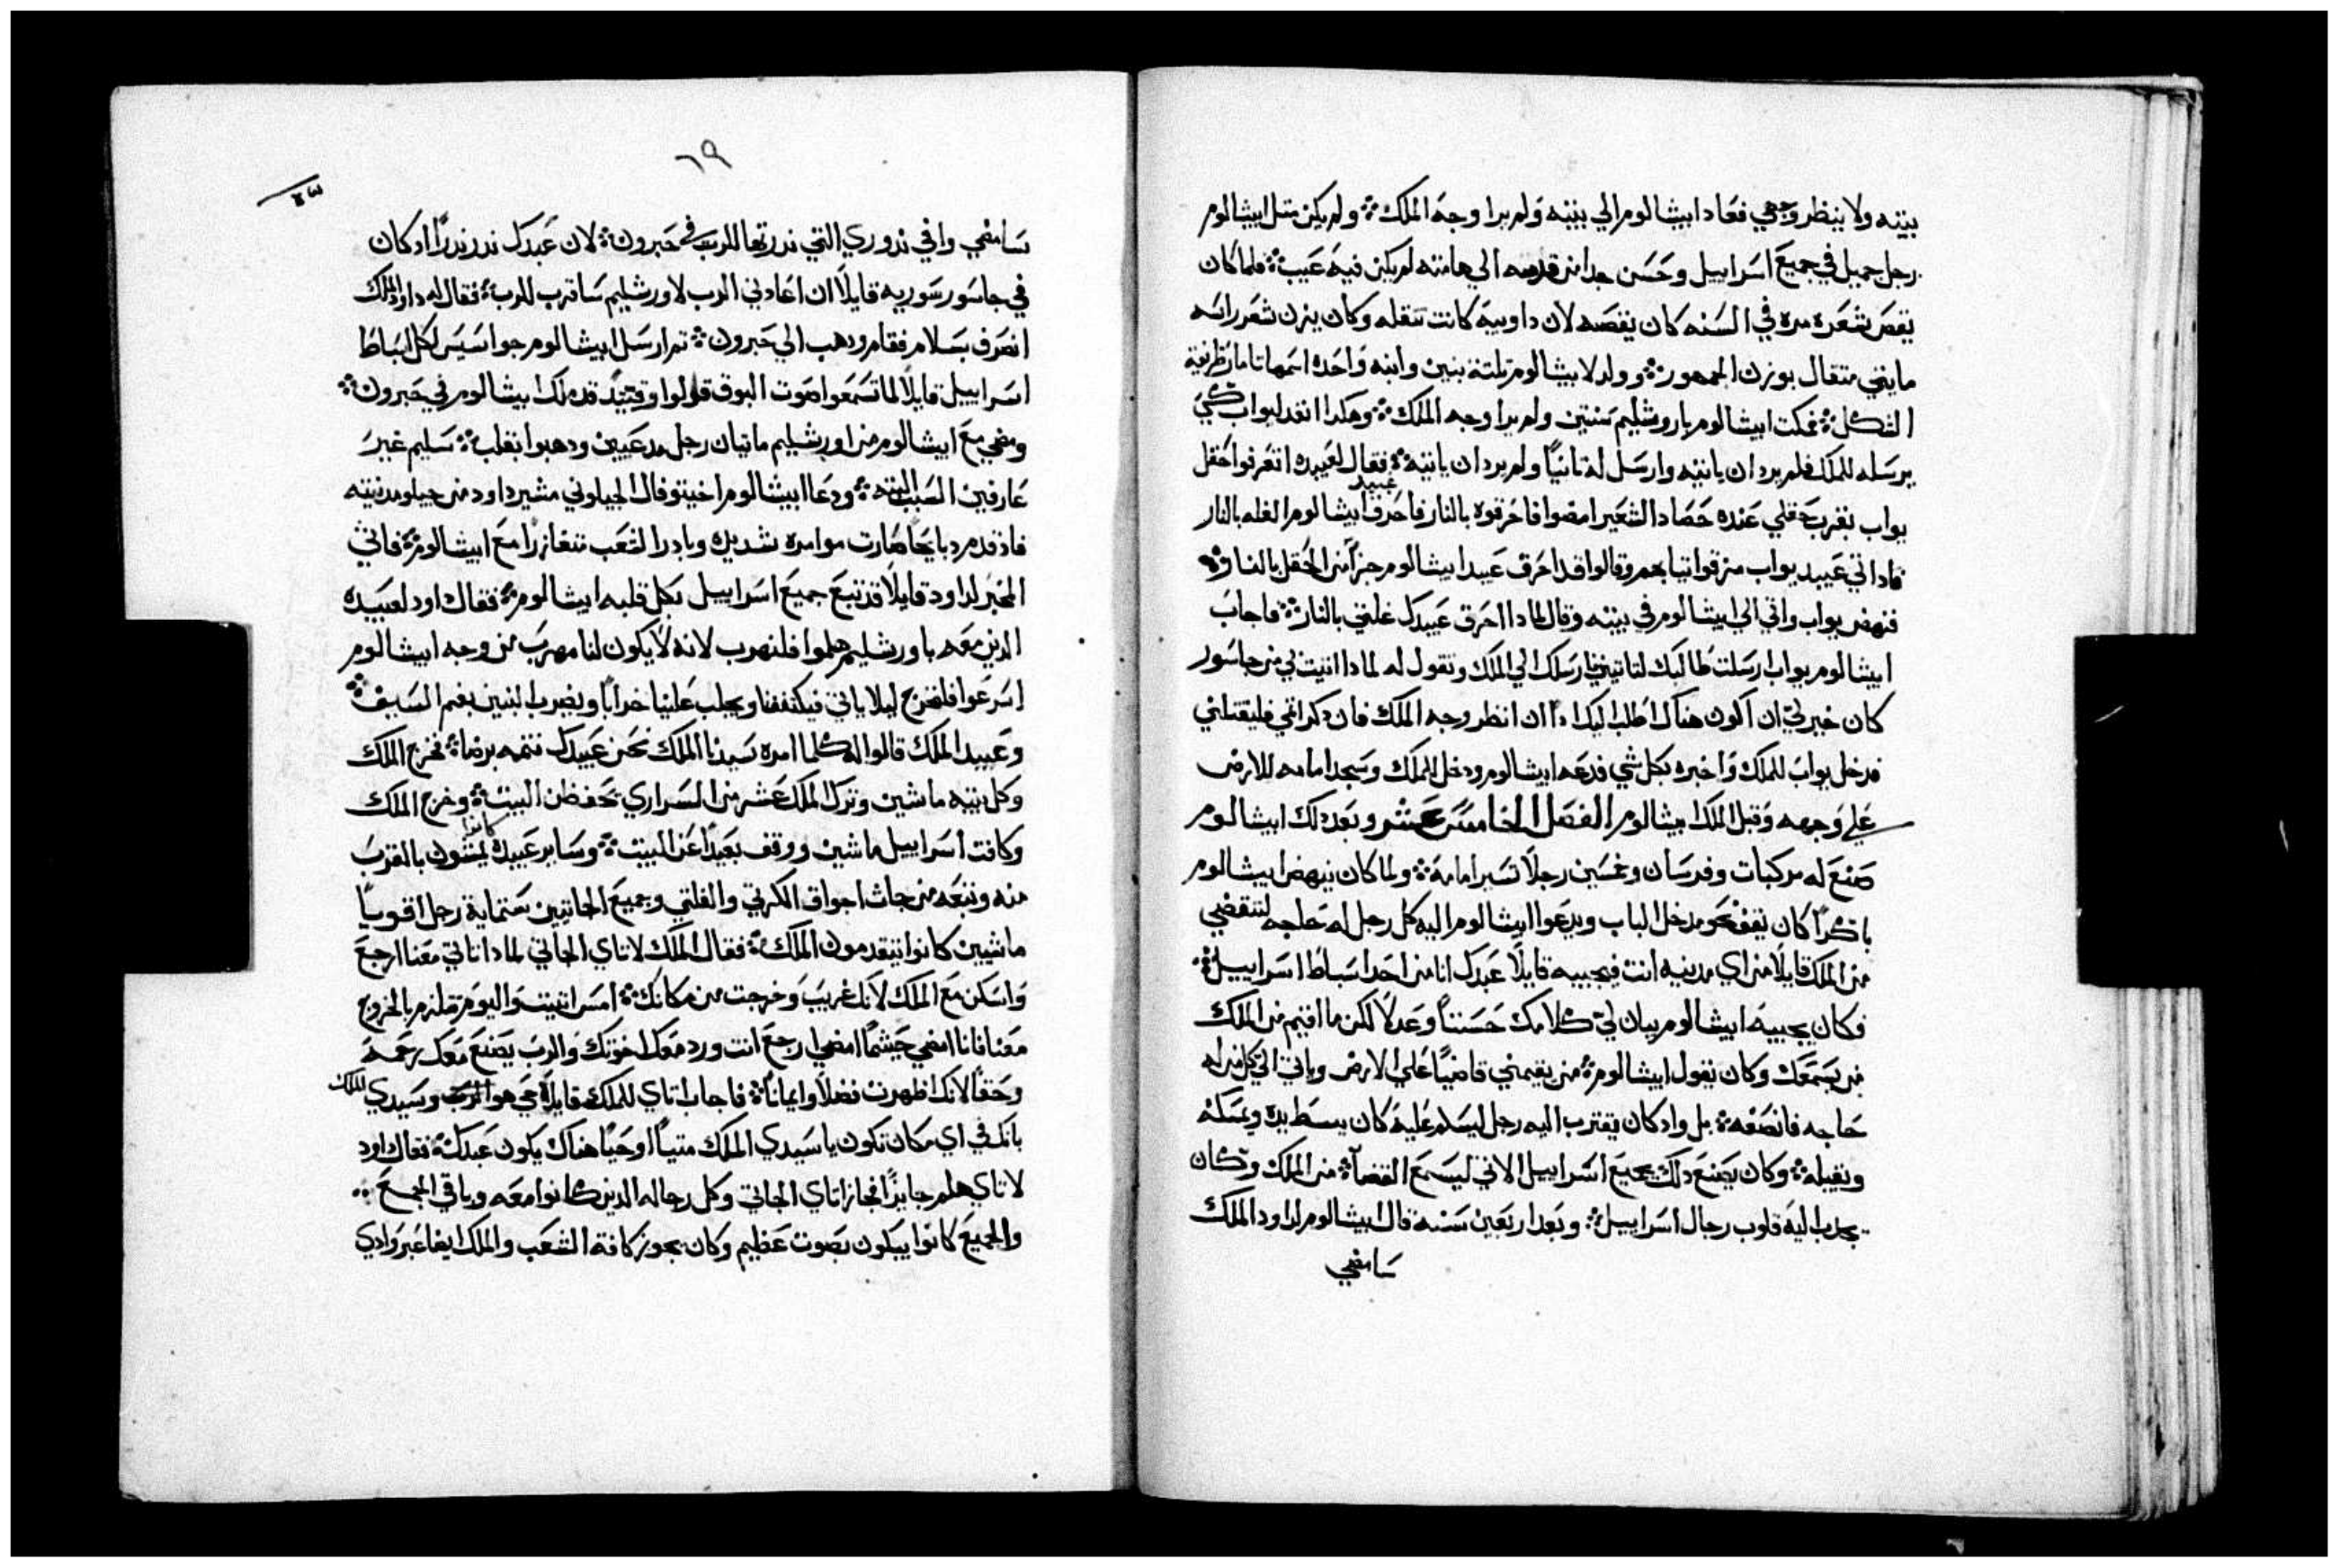 بيته ولا ينظر وجهي فعاد ابيشالوم الي بيته ولم يرا وجه الملك ۞ ولم يكن متل ابيشالوم
رجل جميل في جميع اسراييل وحسن جدا من قدمه الي هامته لم يكن فيه عيب ۞ فلما كان
يقص شعره مره في السنه كان يقصه لان داوبيه كانت تتقله وكان يزن شعر راسه
مايتي متقال بوزن الجمهور ۞ وولد لابيشالوم تلتة بنين وابنه واحده اسمها تامار ظريفة
الشكل ۞ فمكت ابيشالوم باروشليم سنتين ولم يرا وجه الملك ۞ وهكدا انفد ليواب كي
يرسله للملك فلم يرد ان ياتيه وارسل له تانياً ولم يرد ان ياتيه ۞ فقال لعبيده اتعرفوا حقل
يواب بقرب حقلي عنده حصاد الشعير امضوا فاحرقوه بالنار فاحرق عبيد ابيشالوم الغله بالنار
فاداتي عبيد يواب مزقوا تيابهم وقالوا قد احرق عبيد ابيشالوم جزاً من الحقل بالنار ۞
فنهض يواب واتي الي ابيشالوم في بيته وقال لمادا احرق عبيدك غلتي بالنار ۞ فاجاب
ابيشالوم يواب ارسلت طالبك لتاتيني فارسلك الي الملك وتقول له لمادا اتيت بي من جاسور
كان خير لي ان اكون هناك اطلب اليك ادا ان انظر وجه الملك فان دكر اتمي فليقتلني
فدخل يواب للملك واخبره بكل شي فدعه ابيشالوم ودخل للملك وسجد امامه للارض
علي وجهه وقبل الملك ابيشالوم الفصل الخامس عشر وبعد دلك ابيشالوم
صنع له مركبات وفرسان وخمسين رجلاً تسير امامه ۞ ولما كان ينهض ابيشالوم
باكراً كان يقف نحو مدخل الباب ويدعوا ابيشالوم اليه كل رجل له حاجه لتنقضي
من الملك قايلاً من اي مدينه انت فيجيبه قايلاً عبدك انا من احد اسباط اسراييل ۞
فكان يجيبه ابيشالوم يبان لي كلامك حسناً وعدلاً لكن ما اقيم من الملك
من يسمعك وكان يقول ابيشالوم ۞ من يقيمني قاضياً علي الارض وياتي الي كل من له
حاجه فانصفه ۞ بل وادكان يقترب اليه رجل ليسلم عليه كان يبسط يده ويمسكه
ويقبله ۞ وكان يصنع دلك بجميع اسراييل الاتي ليسمع القضاه من الملك وكان
يجدب اليه قلوب رجال اسراييل ۞ وبعد اربعين سنه قال ابيشالوم لداود الملك
سامضي
٦٩
سامضي وافي ندوري التي ندرتها للرب في حبرون ۞ لان عبدك ندر ندراً ادكان
في جاسور سوريه قايلاً ان اعادني الرب لاورشليم ساقرب للرب ۞ فقال له داود الملك
انصرف بسلام فقام ودهب الي حبرون ۞ تم ارسل ابيشالوم جواسيس لكل اسباط
اسراييل قايلاً لما تسمعوا صوت البوق قولوا وقتيد قد ملك ابيشالوم في حبرون ۞
ومضي مع ابيشالوم من اورشليم مايتان رجل مدعيين ودهبوا بقلب ۞ سليم غير
عارفين السبب البته ۞ ودعا ابيشالوم اخيتوفال الجيلوني مشير داود من جيلو مدينته
فاد قدم دبايحاً صارت موامره شديده وبادر الشعب متغازراً مع ابيشالوم ۞ فاتي
المخبر لداود قايلاً قد تبع جميع اسراييل بكل قلبه ابيشالوم ۞ فقال داود لعبيده
الدين معه باورشليم هلموا فلنهرب لانه لا يكون لنا مهرب من وجه ابيشالوم
اسرعوا فلنخرج ليلا ياتي فيكتنفنا ويجلب علينا خراباً ويضرب البنين بفم السيف ۞
وعبيد الملك قالوا له كلما امره سيدنا الملك نحن عبيدك نتمه برضاه ۞ فخرج الملك
وكل بيته ماشين وترك الملك عشر من السراري تحفظن البيت ۞ وخرج الملك
وكافت اسراييل ماشين ووقف بعيداً عن البيت ۞ وساير عبيده كانوا يمشون بالقرب
منه وتتبعه من جات اجواق الكرتي والفلتي وجميع الجاتيين ستماية رجل اقوياً
ماشيين كانوا يتقدمون الملك ۞ فقال الملك لاتاي الجاتي لمادا تاتي معنا ارجع
واسكن مع الملك لانك غريب وخرجت من مكانك ۞ امس اتيت واليوم تلزم بالخروج
معنا فانا امضي حيتما امضي ارجع انت ورد معك اخوتك والرب يصنع معك رحمه
وحقاً لانك اظهرت فضلاً وايماناً ۞ فاجاب اتاي للملك قايلاً حي هو الرب وسيدي الملك
بانك في اي مكان تكون يا سيدي الملك ميتاً او حياً هناك يكون عبدك ۞ فقال داود
لاتاي هلم جايزاً فجاز اتاي الجاتي وكل رجاله الدين كانوا معه وباقي الجمع ۞
والجميع كانوا يبكون بصوت عظيم وكان يجوز كافة الشعب والملك ايضا عبر وادي